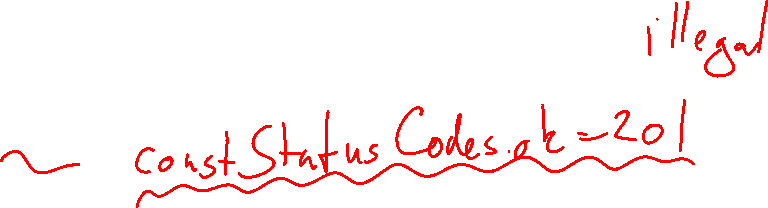 illegal
~ constStatusCodes.ok=201